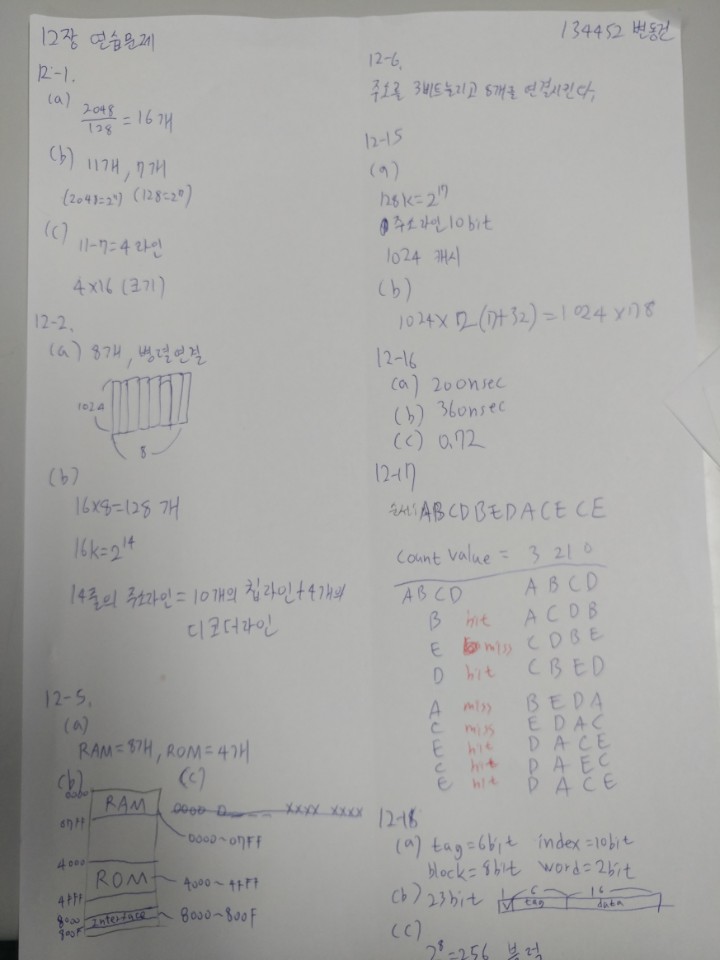 12장 연습문제
134452 변동건
12-1.
(a)
2048/128 = 16개
(b) 11개, 7개
(2048=2¹¹) (128=2⁷)
(c)
11-7=4 라인
4×16 (크기)
12-2.
(a) 8개, 병렬연결
1024
8
(b)
16×8=128 개
16k=2¹⁴
14줄의 주소라인 = 10개의 칩라인+4개의
디코더라인
12-5.
(a)
RAM=8개, ROM=4개
(b) (c)
0000
RAM
0000 0 xxxx xxxx
07FF
0000~07FF
4000
ROM
4000~4FFF
4FFF
8000
Interface
8000~800F
800F
12-6.
주소를 3비트늘리고 8개를 연결시킨다.
12-15
(a)
128k=2¹⁷
주소라인 10bit
1024 캐시
(b)
1024×2(7+32)=1024×78
12-16
(a) 200nsec
(b) 360nsec
(c) 0.72
12-17
순서: ABCDBEDACECE
count value = 3 2 1 0
ABCD A B C D
B hit A C D B
E miss C D B E
D hit C B E D
A miss B E D A
C miss E D A C
E hit D A C E
C hit D A E C
E hit D A C E
12-18
(a) tag=6bit index=10bit
block=8bit word=2bit
(b) 23bit 1 6 16
V tag data
(c)
2⁸=256 블럭